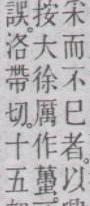 而不巳者。以
按大徐厲作蠆
誤。洛帶切。十五